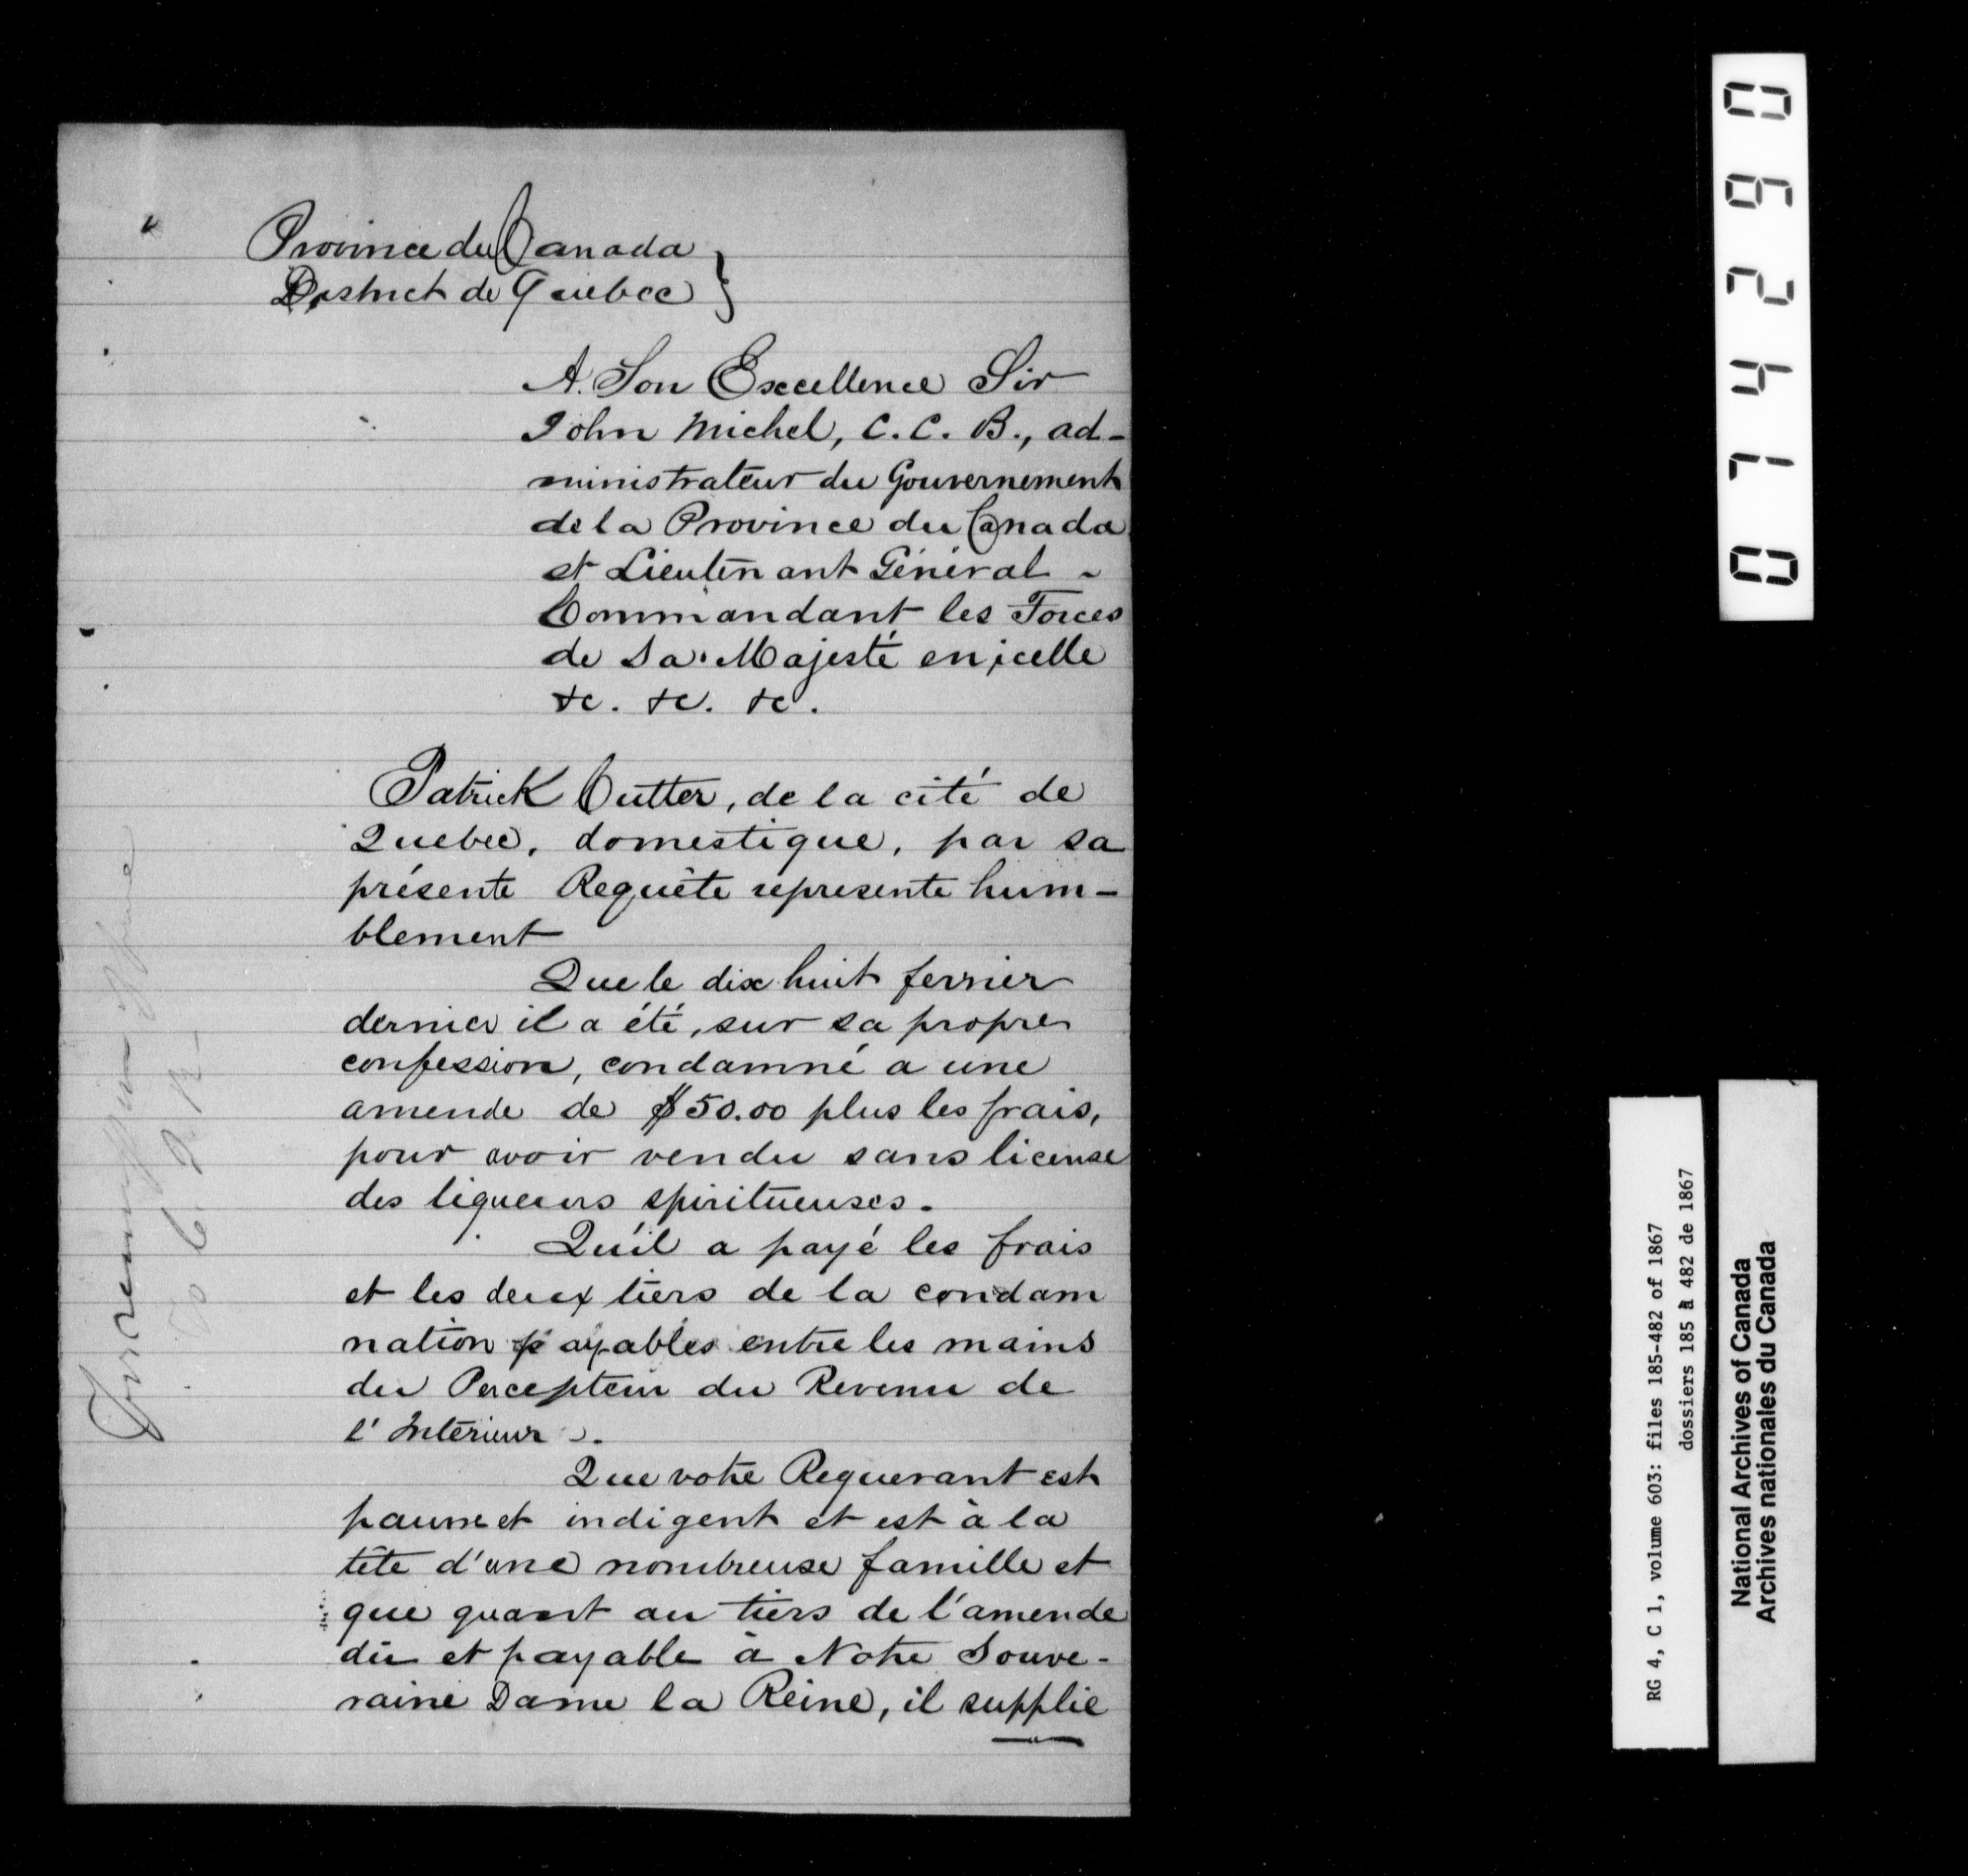 Province du Canada
District de Quebec }
A Son Excellence Sir
John Michel, C. C. B., ad-
ministrateur du Gouvernement
de la Province du Canada
et Lieutenant Général
Commandant les Forces
de Sa Majesté en icelle
&c. &c. &c.
Patrick Cutter, de la cité de
Quebec, domestique, par sa
présente Requête represente hum-
blement
Que le dix huit fevrier
dernier il a été, sur sa propre
confession, condamné a une
amende de $50.00 plus les frais,
pour avoir vendu sans license
des liqueurs spiritueuses.
Qu'il a payé les frais
et les deux tiers de la condam
nation payables entre les mains
du Percepteur du Revenu de
l'Intérieur.
Que votre Requerant est
pauvre et indigent et est à la
tête d'une nombreuse famille et
que quant au tiers de l'amende
dû et payable à Notre Souve-
raine Dame la Reine, il supplie
074290
RG 4, C 1, volume 603: files 185-482 of 1867
dossiers 185 à 482 de 1867
National Archives of Canada
Archives nationales du Canada